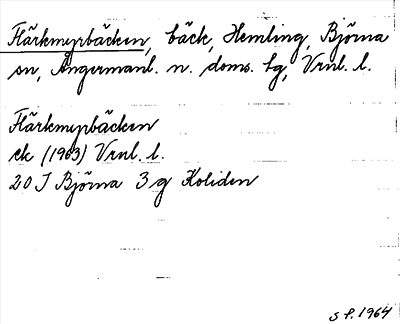 Flärkmyrbäcken, bäck, Hemling, Björna
sn, Ångermanl. n. doms. hg, Vrnl. l.
Flärkmyrbäcken
ek (1963) Vrnl. l.
20 J Björna 3 g Koliden
S P. 1964